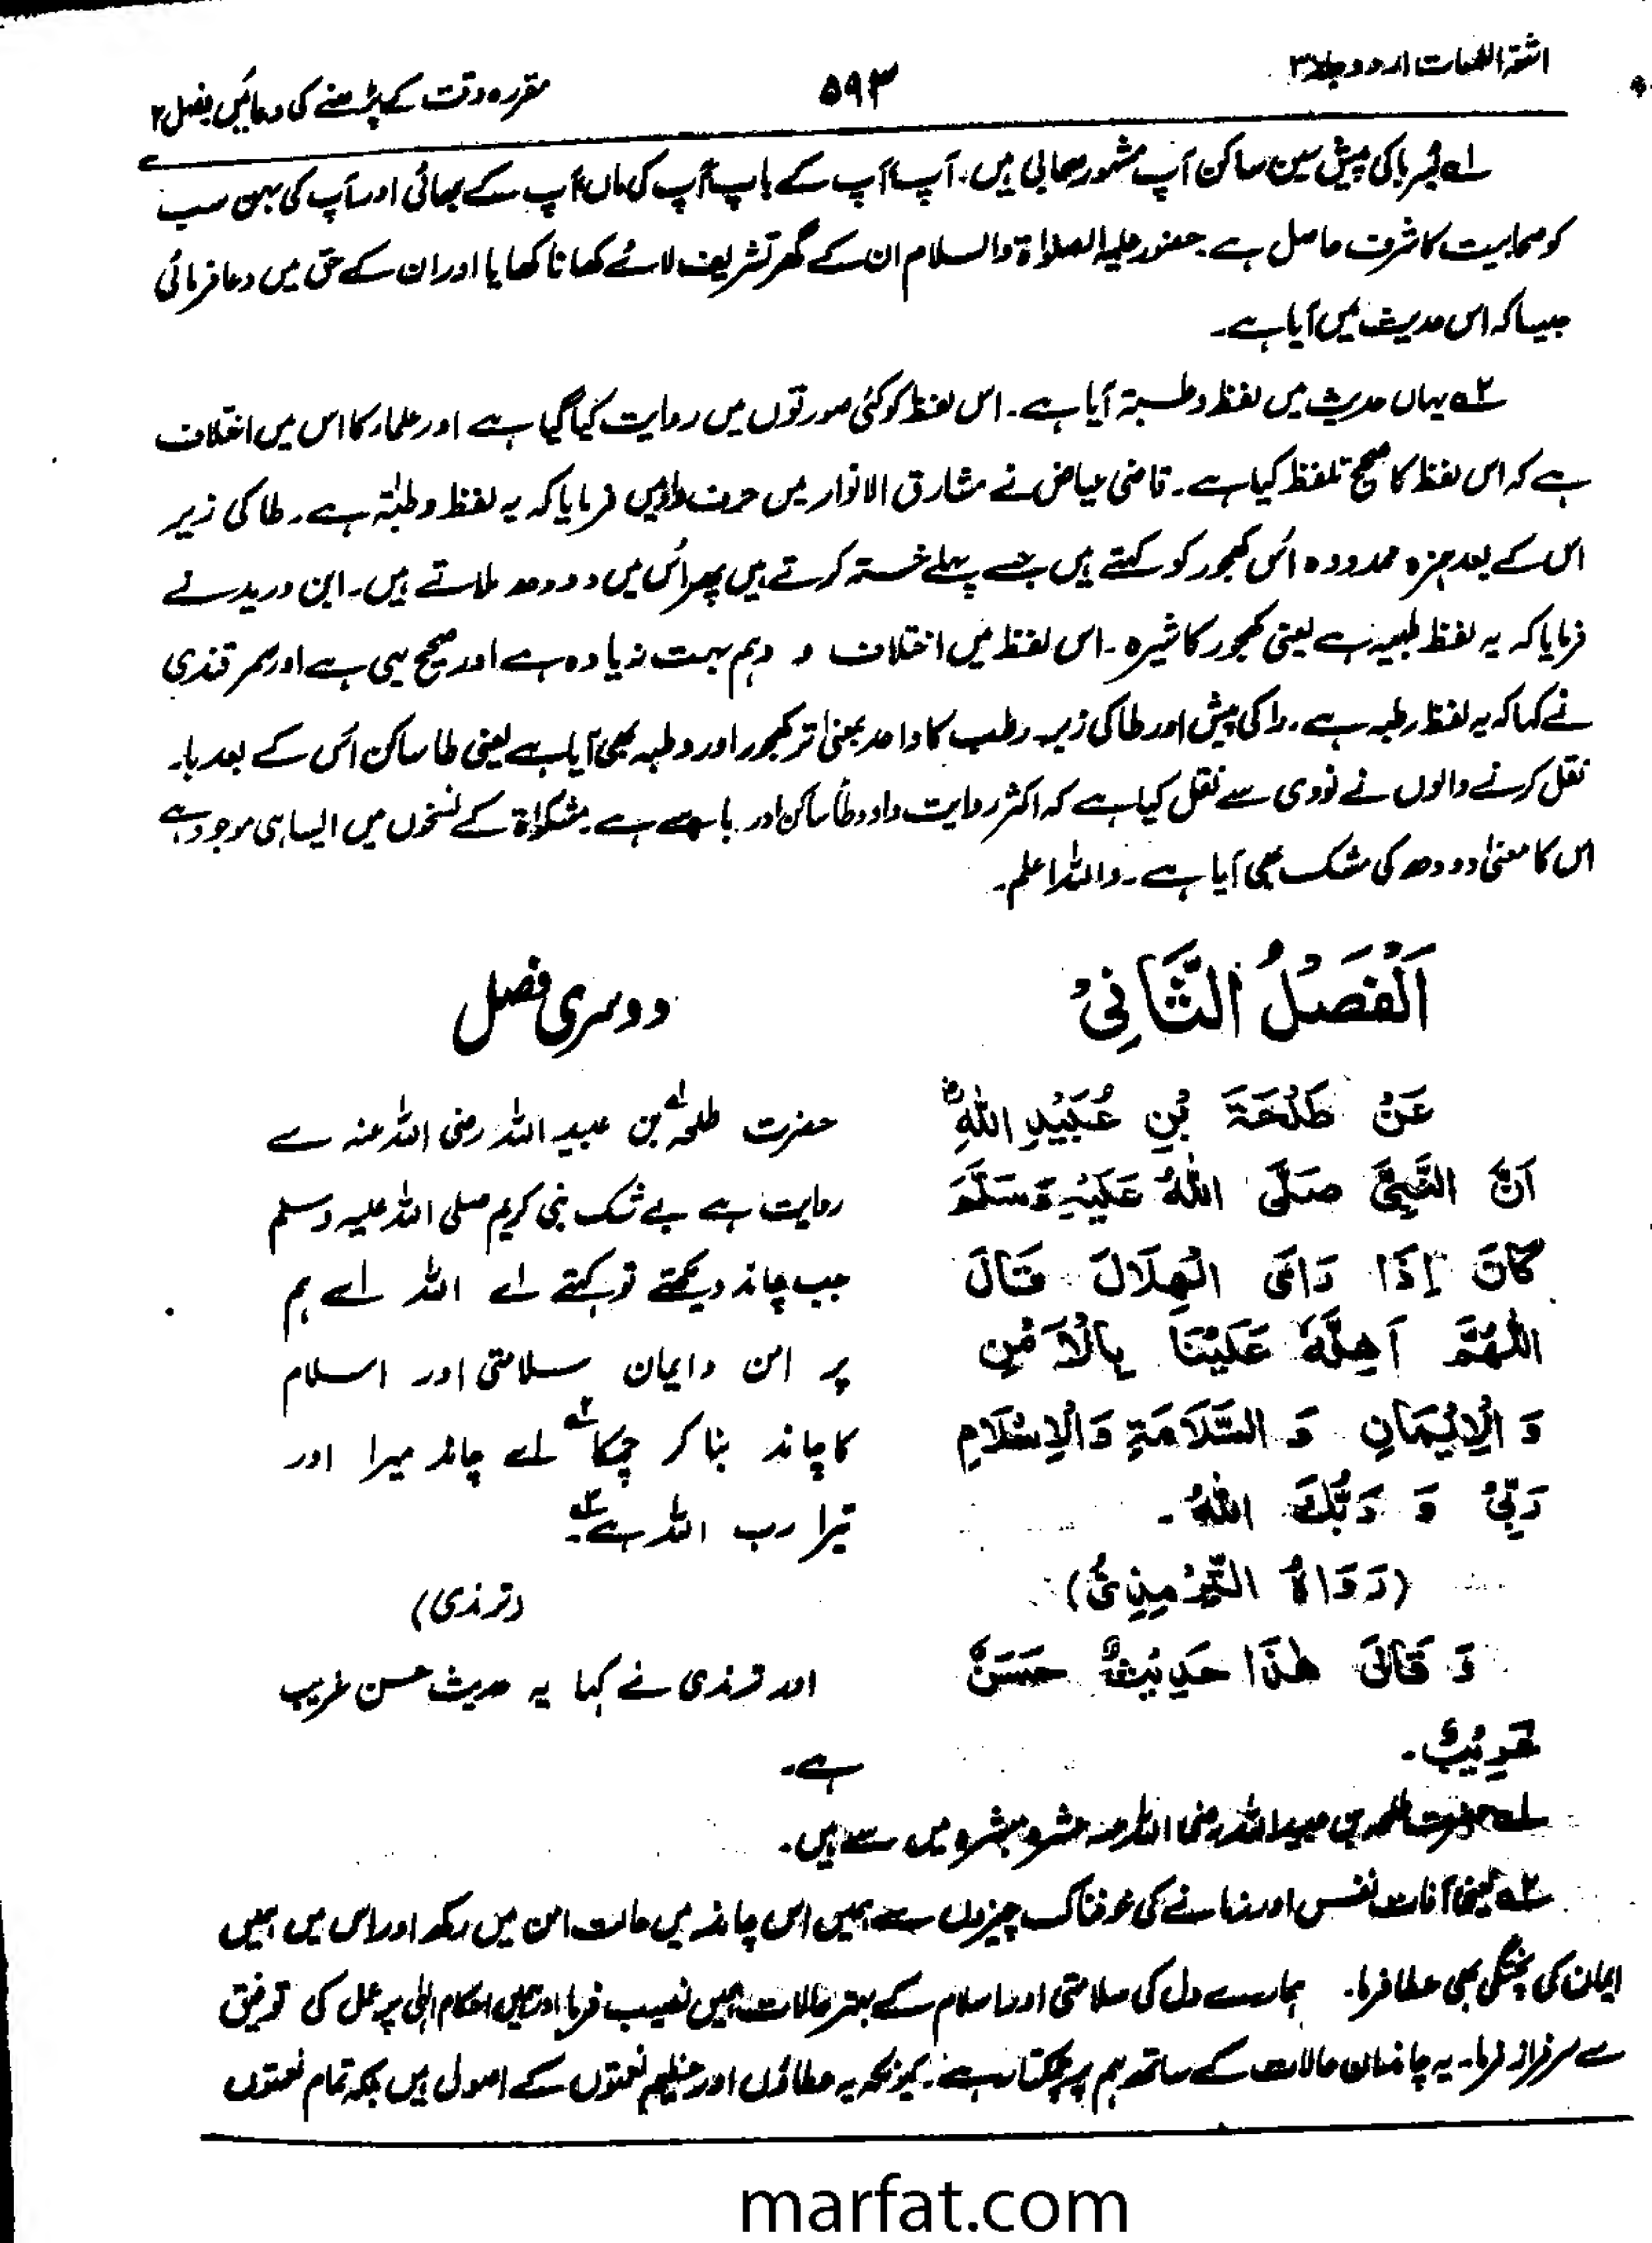 اشعۃ اللمعات اردو جلد ۳
۵۹۳
مقررہ وقت کے پڑھنے کی دعائیں فصل ۲
۱ے بُسر باکی پیش سین ساکن آپ مشہور صحابی ہیں۔ آپ آپ کے باپ آپ کی ماں آپ کے بھائی اور آپ کی بہن سب
کو صحابیت کا شرف حاصل ہے حضور علیہ الصلاۃ والسلام ان کے گھر تشریف لائے کھانا کھایا اور ان کے حق میں دعا فرمائی
جیسا کہ اس حدیث میں آیا ہے۔
۲ے یہاں حدیث میں لفظ وطبۃ آیا ہے۔ اس لفظ کو کئی صورتوں میں روایت کیا گیا ہے اور علماء کا اس میں اختلاف
ہے کہ اس لفظ کا صحیح تلفظ کیا ہے۔ قاضی عیاض نے مشارق الانوار میں حرف واؤ میں فرمایا کہ یہ لفظ وطئۃ ہے۔ طا کی زیر
اس کے بعد ہمزہ ممدودہ اُس کھجور کو کہتے ہیں جسے پہلے خستہ کرتے ہیں پھر اُس میں دودھ ملاتے ہیں۔ ابن درید نے
فرمایا کہ یہ لفظ ہے یعنی کھجور کا شیرہ۔ اس لفظ میں اختلاف و وہم بہت زیادہ ہے اور صحیح یہی ہے اور سمرقندی
نے کہا کہ یہ لفظ رطبہ ہے۔ را کی پیش اور طا کی زبر رطب کا واحد بمعنیٰ تر کھجور اور وطبہ بھی آیا ہے یعنی طا ساکن اُس کے بعد با۔
نقل کرنے والوں نے نووی سے نقل کیا ہے کہ اکثر روایت واو وطا ساکن اور با سے ہے۔ مشکوٰۃ کے نسخوں میں ایسا ہی موجود ہے
اس کا معنیٰ دودھ کی مشک بھی آیا ہے۔ واللہ اعلم۔
اَلْفَصْلُ الثَّانِیْ
دوسری فصل
عَنْ طَلْحَةَ بْنِ عُبَیْدِ اللّٰهِؓ
اَنَّ النَّبِیَّ صَلَّی اللّٰهُ عَلَیْهِ وَسَلَّمَ
كَانَ إِذَا رَأَی الْهِلَالَ قَالَ
اَللّٰهُمَّ اَهِلَّهٗ عَلَیْنَا بِالْاَمْنِ
وَ الْاِیْمَانِ وَ السَّلَامَةِ وَالْاِسْلَامِ
رَبِّیْ وَ رَبُّكَ اللّٰهُ۔
(رَوَاهُ التِّرْمِذِیُّ)
وَ قَالَ هٰذَا حَدِیْثٌ حَسَنٌ
غَرِیْبٌ۔
حضرت طلحہ۱ے بن عبید اللہ رضی اللہ عنہ سے
روایت ہے بے شک نبی کریم صلی اللہ علیہ وسلم
جب چاند دیکھتے تو کہتے اے اللہ اسے ہم
پر امن وایمان سلامتی اور اسلام
کا چاند بنا کر چمکا۲ے اے چاند میرا اور
تیرا رب اللہ ہے۳ے۔
(ترمذی)
اور ترمذی نے کہا یہ حدیث حسن غریب
ہے۔
۱ے حضرت طلحہ بن عبید اللہ رضی اللہ عنہ عشرہ مبشرہ میں سے ہیں۔
۲ے یعنی آفات نفس اور زمانے کی خوفناک چیزوں سے ہمیں اس چاند میں حالت امن میں رکھ اور اس میں ہمیں
ایمان کی پختگی بھی عطا فرما۔ ہمارے دل کی سلامتی اور اسلام کے بہتر حالات ہمیں نصیب فرما اور ہمیں احکام الٰہی پر عمل کی توفیق
سے سرفراز فرما۔ یہ چاند ان حالات کے ساتھ ہم پر چمکتا رہے۔ کیونکہ یہ عطاؤں اور عظیم نعمتوں کے اصول ہیں بلکہ تمام نعمتوں
marfat.com